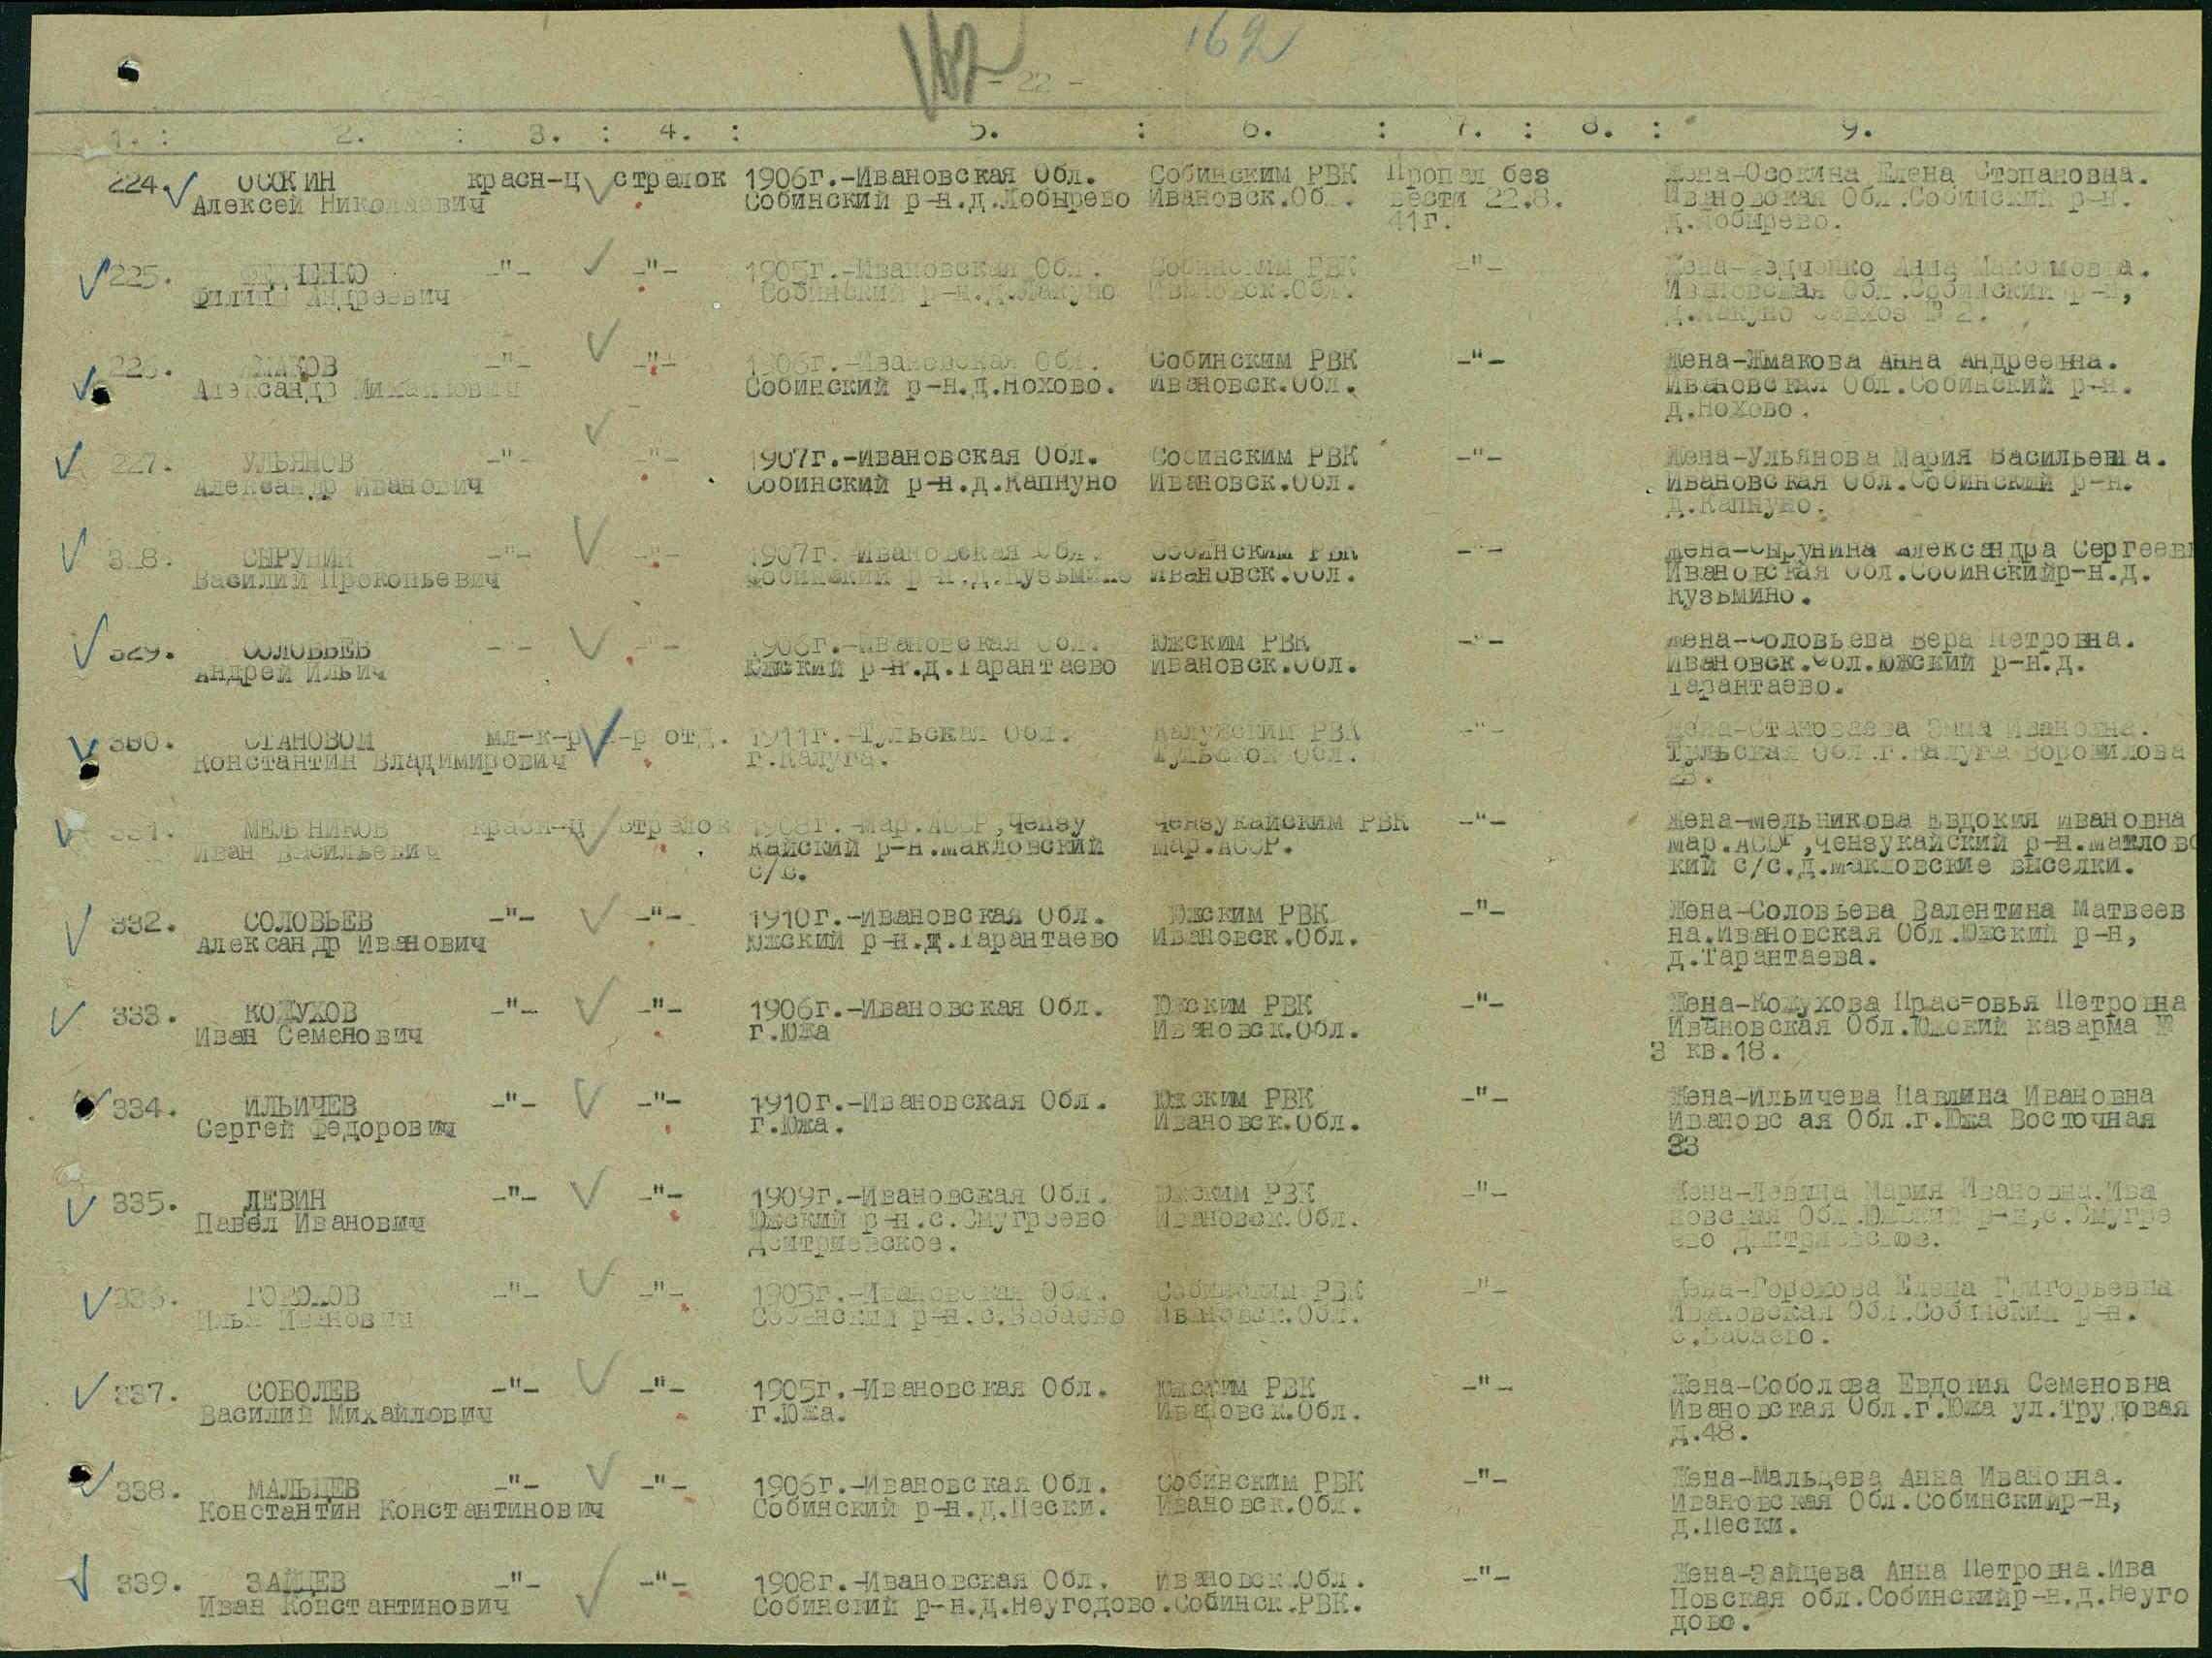 162 162
- 22 -
1. : 2. : 3. : 4. : 5. : 6. : 7. : 8. : 9.
224. ОСОКИН красн-ц стрелок 1906г.-Ивановская Обл. Собинским РВК Пропал без Жена-Осокина Елена Степановна.
Алексей Николаевич Собинский р-н.д.Лобырево Ивановск.Обл. вести 22.8. Ивановская Обл.Собинский р-н.
41г. д.Лобырево.
225. ФЕДЧЕНКО -"- -"- 1905г.-Ивановская Обл. Собинским РВК -"- Жена-Федченко Анна Максимовна.
Филипп Андреевич Собинский р-н.д. Ивановск.Обл. Ивановская Обл.Собинский р-н,
226. ЖМАКОВ -"- -"- 1906г.-Ивановская Обл. Собинским РВК -"- Жена-Жмакова Анна Андреевна.
Александр Михайлович Собинский р-н.д.Нохово. Ивановск.Обл. Ивановская Обл.Собинский р-н.
д.Нохово.
227. УЛЬЯНОВ -"- -"- 1907г.-Ивановская Обл. Собинским РВК -"- Жена-Ульянова Мария Васильевна.
Александр Иванович Собинский р-н.д.Капнуно Ивановск.Обл. Ивановская Обл.Собинский р-н.
д.Капнуно.
328. СЫРУНИН -"- -"- 1907г.-Ивановская Обл. Собинским РВК -"- Жена-Сырунина Александра Сергеевн
Василий Прокопьевич Собинский р-н.д.Кузьмино Ивановск.Обл. Ивановская Обл.Собинскийр-н.д.
Кузьмино.
329. СОЛОВЬЕВ -"- -"- 1906г.-Ивановская Обл. Южским РВК -"- Жена-Соловьева Вера Петровна.
Андрей Ильич Южский р-н.д.Тарантаево Ивановск.Обл. Ивановск.Обл.Южский р-н.д.
Тарантаево.
330. СТАНОВОМ мл-к-р к-р отд. 1911г.-Тульская Обл. Калужским РВК -"- Жена- Эмма Ивановна.
Константин Владимирович г.Калуга. Тульской Обл. Тульская Обл.г.Калуга Ворошилова
23.
331. МЕЛЬНИКОВ красн-ц стрелок 1908г.-Мар.АССР,Чензу Чензукайским РВК -"- Жена-Мельникова Евдокия Ивановна
Иван Васильевич кайский р-н.Макловский Мар.АССР. Мар.АССР,Чензукайский р-н.Маклово
с/с. кий с/с.д.Макловские выселки.
332. СОЛОВЬЕВ -"- -"- 1910г.-Ивановская Обл. Южским РВК -"- Жена-Соловьева Валентина Матвеев
Александр Иванович Южский р-н.д.Тарантаево Ивановск.Обл. на.Ивановская Обл.Южский р-н,
д.Тарантаева.
333. КОЖУХОВ -"- -"- 1906г.-Ивановская Обл. Южским РВК -"- Жена-Кожухова Прас=овья Петровна
Иван Семенович г.Южа Ивановск.Обл. Ивановская Обл.Южский казарма №
3 кв.18.
334. ИЛЬИЧЕВ -"- -"- 1910г.-Ивановская Обл. Южским РВК -"- Жена-Ильичева Павлина Ивановна
Сергей Федорович г.Южа. Ивановск.Обл. Ивановс ая Обл.г.Южа Восточная
33
335. ЛЕВИН -"- -"- 1909г.-Ивановская Обл. Южским РВК -"- Жена-Левина Мария Ивановна.Ива
Павел Иванович Южский р-н.с.Смугреево Ивановск.Обл. новская Обл.Южский р-н,с.Смугре
Дмитриевское. ево Дмитриевское.
336. ГОРОХОВ -"- -"- 1905г.-Ивановская Обл. Собинским РВК -"- Жена-Горохова Елена Григорьевна
Илья Иванович Собинский р-н.с.Бабаево Ивановск.Обл. Ивановская Обл.Собинский р-н.
с.Бабаево.
337. СОБОЛЕВ -"- -"- 1905г.-Ивановская Обл. Южским РВК -"- Жена-Соболева Евдокия Семеновна
Василий Михайлович г.Южа. Ивановск.Обл. Ивановская Обл.г.Южа ул.Трудовая
д.48.
338. МАЛЬЦЕВ -"- -"- 1906г.-Ивановская Обл. Собинским РВК -"- Жена-Мальцева Анна Ивановна.
Константин Константинович Собинский р-н.д.Пески. Ивановск.Обл. Ивановская Обл.Собинскийр-н,
д.Пески.
339. ЗАЙЦЕВ -"- -"- 1908г.-Ивановская Обл. Ивановск.Обл. -"- Жена-Зайцева Анна Петровна.Ива
Иван Константинович Собинский р-н.д.Неугодово.Собинск.РВК. Новская обл.Собинскийр-н.д.Неуго
дово.